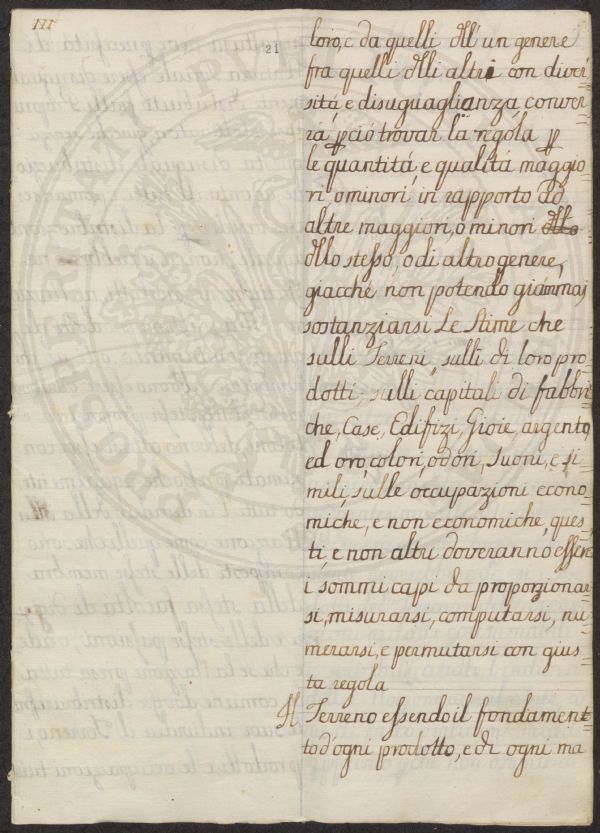 III
21
loro, e da quelli dll' un genere
fra quelli dlli altri con diver
sitá, e disuguaglianza, conver
rá p ció trovar la regola p
le quantitá, e qualitá maggio
ri, o minori, in rapporto ad
altre maggiori, o minori dllo
dllo stesso, o di altro genere,
giacché non potendo giammai
sostanziarsi Le Stime che
sulli Terreni, sulli di loro pro
dotti, sulli capitali di fabbri
che, Case, Edifizj, Gioie, argento,
ed oro, colori, odori, Suoni, e si
mili, sulle occupazioni econo
miche, e non economiche, ques
ti, e non altri doveranno essere
i sommi capi da proporzionar
si, misurarsi, computarsi, nu
merarsi, e permutarsi con gius
ta regola
Il Terreno essendo il fondament
to d'ogni prodotto, e di ogni ma